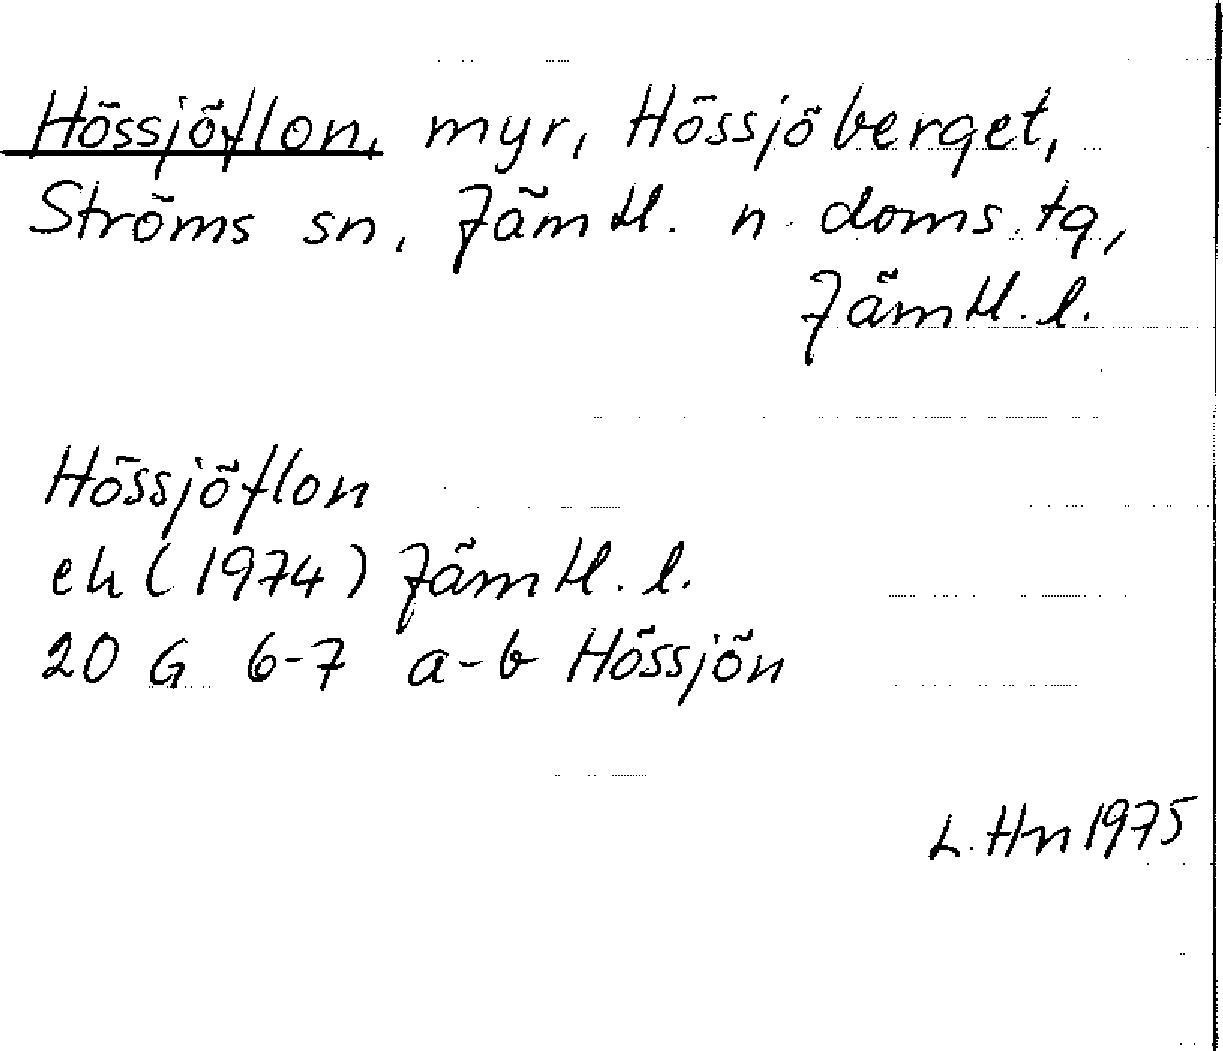 Hössjöflon, myr, Hössjöberget,
Ströms sn, Jämtl. n. doms.tg,
Jämtl. l.
Hössjöflon
ek (1974) Jämtl. l.
20 G 6-7 a-b Hössjön
L. Hn 1975